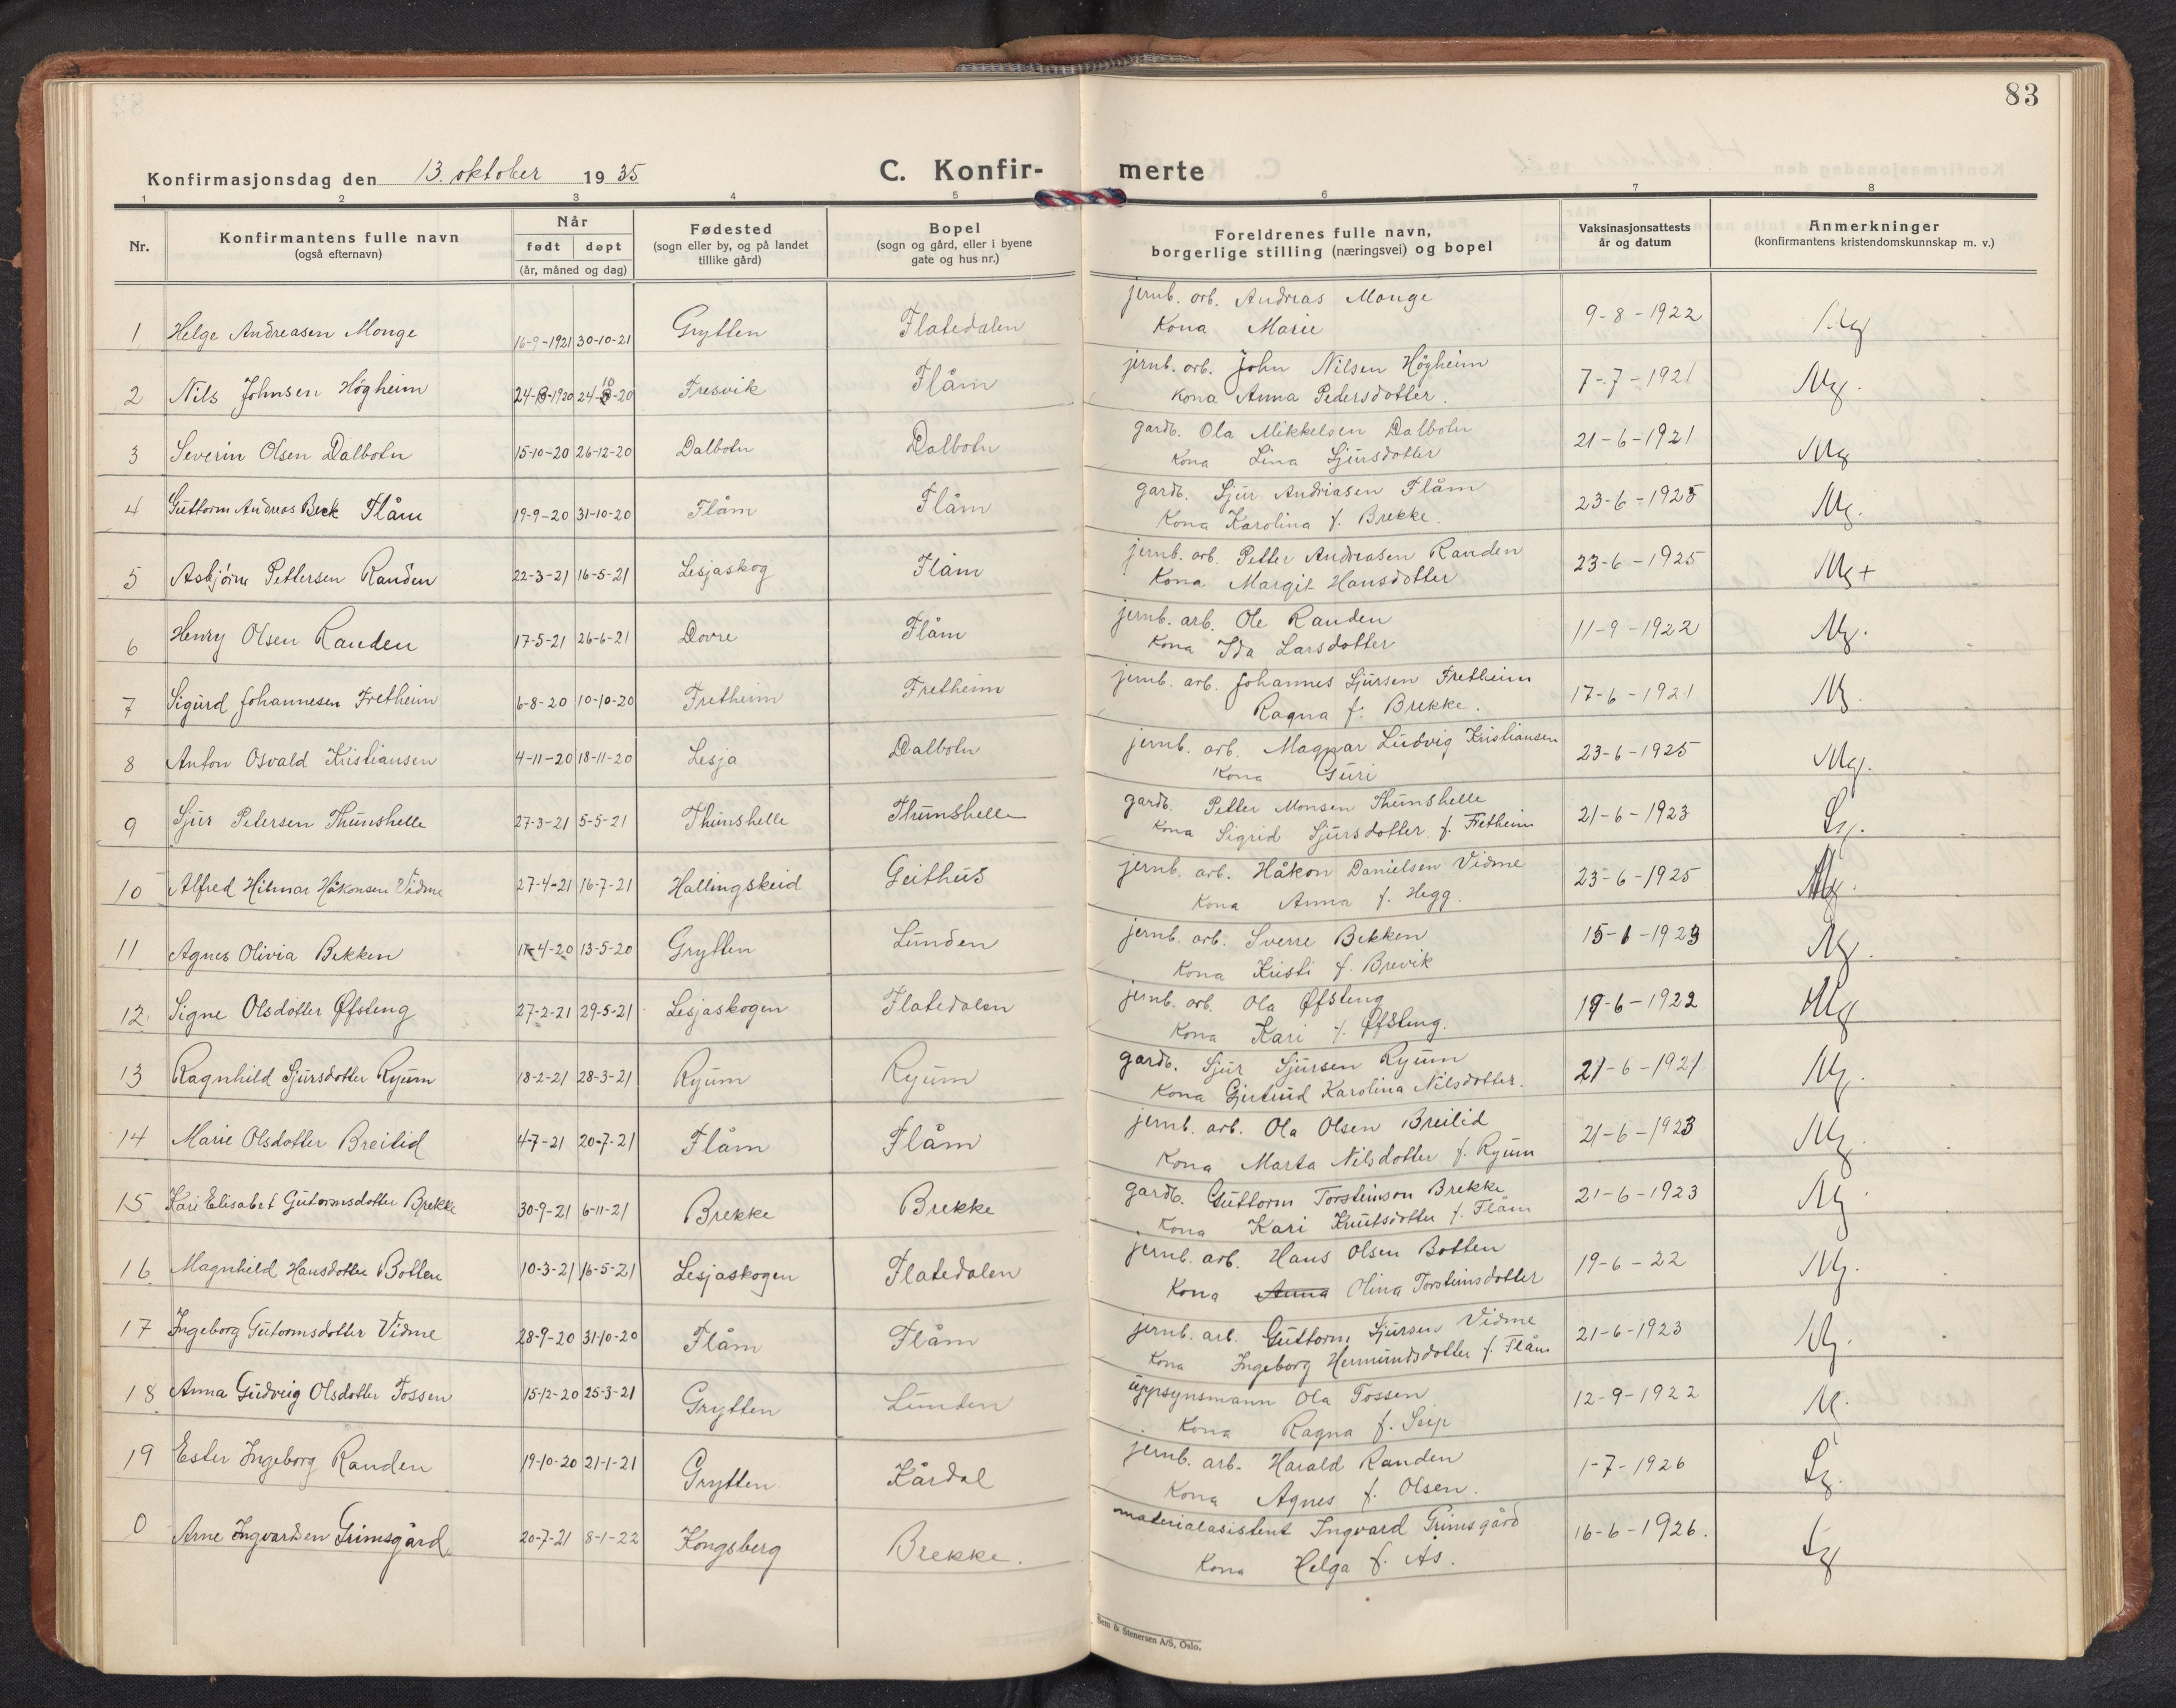 83
Konfirmasjonsdag den 13. oktober 1935
C. Konfir- merte
1 2 3 4 5 6 7 8
Nr. Konfirmantens fulle navn (også efternavn) Når født døpt (år, måned og dag) Fødested (sogn eller by, og på landet tillike gård) Bopel (sogn og gård, eller i byene gate og hus nr.) Foreldrenes fulle navn, borgerlige stilling (næringsvei) og bopel Vaksinasjonsattests år og datum Anmerkninger (konfirmantens kristendomskunnskap m. v.)
1 Helge Andreasen Monge 16-9-1921 30-10-21 Grytten Flatedalen jernb. arb. Andreas Monge 9-8-1922 Mg
Kona Marie
2 Nils Johnsen Høgheim 24-8-1920 24-10-20 Fresvik Flåm jernb. arb. John Nilsen Høgheim 7-7-1921 Mg.
Kona Anna Pedersdotter.
3 Severin Olsen Dalbotn 15-10-20 26-12-20 Dalbotn Dalbotn gardb. Ola Mikkelsen Dalbotn 21-6-1921 Mg
Kona Lina Sjursdotter
4 Guttorm Andreas Beck Flåm 19-9-20 31-10-20 Flåm Flåm gardb. Sjur Andriasen Flåm 23-6-1925 Mg.
Kona Karolina f. Brekke.
5 Asbjørn Pettersen Randen 22-3-21 16-5-21 Lesjaskog Flåm jernb. arb. Petter Andreasen Randen 23-6-1925 Mg+
Kona Margit Hansdotter
6 Henry Olsen Randen 17-5-21 26-6-21 Dovre Flåm jernb. arb. Ole Randen 11-9-1922 Mg.
Kona Ida Larsdotter
7 Sigurd Johannesen Fretheim 6-8-20 10-10-20 Fretheim Fretheim jernb. arb. Johannes Sjursen Fretheim 17-6-1921 Mg.
Ragna f. Brekke.
8 Anton Osvald Kristiansen 4-11-20 18-11-20 Lesja Dalbotn jernb. arb. Magnar Ludvig Kristiansen 23-6-1925 Mg.
Kona Guri
9 Sjur Petersen Thunshelle 27-3-21 5-5-21 Thunshelle Thunshelle gardb. Petter Monsen Thunshelle 21-6-1923 Sg.
Kona Sigrid Sjursdotter f. Fretheim
10 Alfred Hilmar Håkonsen Vidme 27-4-21 16-7-21 Hallingskeid Geithus jernb. arb. Håkon Danielsen Vidme 23-6-1925 Mg.
Kona Anna f. Hegg.
11 Agnes Olivia Bekken 17-4-20 13-5-20 Grytten Lunden jernb. arb. Sverre Bekken 15-6-1923 Mg.
Kona Kristi f. Brevik
12 Signe Olsdotter Øfsteng 27-2-21 29-5-21 Lesjaskogen Flatedalen jernb. arb. Ola Øfsteng 19-6-1922 Mg
Kona Kari f. Øfsteng.
13 Ragnhild Sjursdotter Ryum 18-2-21 28-3-21 Ryum Ryum gardb. Sjur Sjursen Ryum 21-6-1921 Mg.
Kona Gjertrud Karolina Nilsdotter.
14 Marie Olsdotter Breilid 4-7-21 20-7-21 Flåm Flåm jernb. arb. Ola Olsen Breilid 21-6-1923 Mg.
Kona Marta Nilsdotter f. Ryum
15 Kari Elisabet Guttormsdotter Brekke 30-9-21 6-11-21 Brekke Brekke gardb. Guttorm Torsteinson Brekke 21-6-1923 Mg.
Kona Kari Knutsdotter f. Flåm
16 Magnhild Hansdotter Botten 10-3-21 16-5-21 Lesjaskogen Flatedalen jernb. arb. Hans Olsen Botten 19-6-22 Mg.
Kona Anna Olina Torsteinsdotter
17 Ingeborg Gutormsdotter Vidme 28-9-20 31-10-20 Flåm Flåm jernb. arb. Guttorm Sjursen Vidme 21-6-1923 Mg.
Kona Ingeborg Hermundsdotter f. Flåm
18 Anna Gudveig Olsdotter Fossen 15-12-20 25-3-21 Grytten Lunden uppsynsmann Ola Fossen 12-9-1922 M.
Kona Ragna f. Seip
19 Ester Ingeborg Randen 19-10-20 21-1-21 Grytten Kårdal jernb. arb. Harald Randen 1-7-1926 Sg.
Kona Agnes f. Olsen.
0 Arne Ingvardsen Grimsgård 20-7-21 8-1-22 Kongsberg Brekke. materialasistent Ingvard Grimsgård 16-6-1926. Sg
Kona Helga f. Ås.
Sem & Stenersen A/S, Oslo.